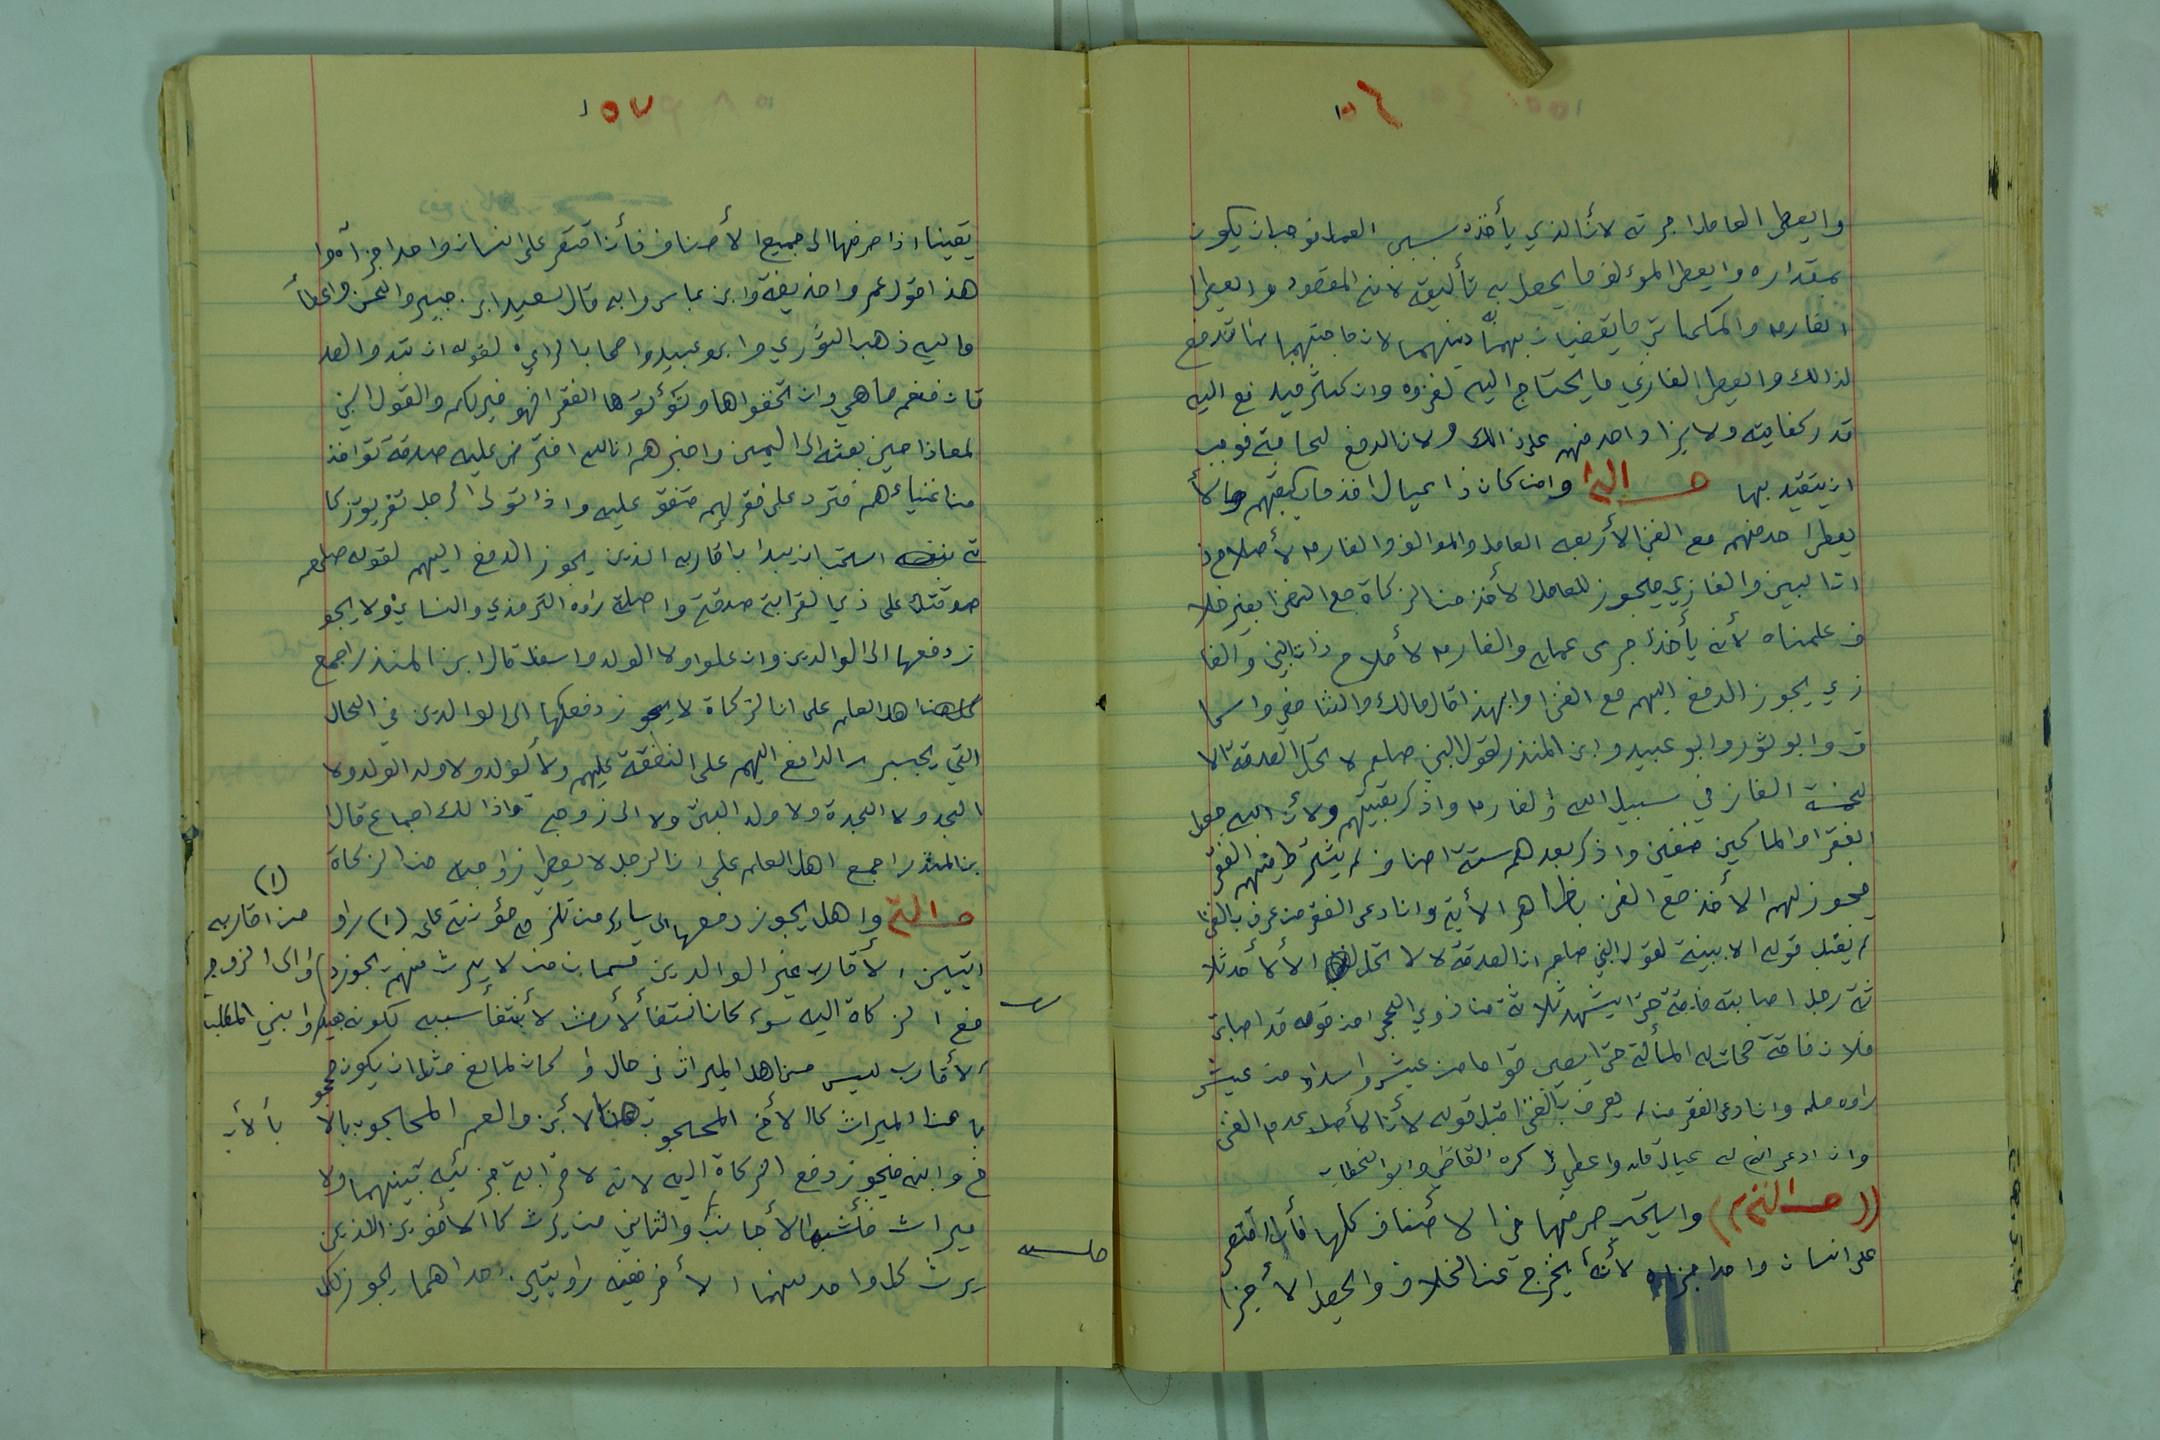 ١٥٦
وايعطى العامل اجرته لأن الذي يأخذه بسبب العمل فوجب ان يكون
بمقداره وايعطى الموءلف ما يحصل به تأليفه لانه المقصود وايعطى
الغارم والمكاتب ما يقضيان به دينهما لان حاجتهما انما تدفع
لذالك وايعطى الغازي ما يحتاج اليه لغزوه وان كثر فيدفع اليه
قدر كفايته ولا يزا واحد منهم على ذالك ولان الدفع لحاجة فوجب
ان يتقيد بها وامن كان ذا عيال اخذ ما يكفيهم ولا
يعطى احد منهم مع الغنى الأربعه العامل والموالف والغارم لأصلاح ذ
ات البين والغازي فيجوز للعامل الأخذ من الزكاة مع الغنى بغير خلا
ف علمناه لأنه يأخذ أجرى عمله والغارم لأصلاح ذات البين والغا
زي يجوز الدفع اليهم مع الغنى وابهذا قال مالك والشافعي واسحا
ق وابو ثور وابو عبيد وابن المنذر لقول النبي صلعم لا تحل الصدقة الا
لخمسة الغاز في سبيل الله والغارم واذكر بقيتهم ولأن الله جعل
الفقرا والماكين صنفين واذكر بعدهم ستة اصناف لم يشترط فيهم الفقر
فيجوز لهم الأخذ مع الغنى بظاهر الأية وان ادعى الفقر من عرف بالغنى
لم يقبل قوله الا ببينة لقول النبي صلعم ان الصدقة لا تحل الا لأحد ثلا
ثة رجل اصابته فاقة حتى يشهد ثلاثة من ذوي الحجى من قومه قد اصابت
فلان فاقة فحلت له المألة حتى يصيب قواما من عيش او سداد من عيش
راوه مسلم وان ادعى الفقر من لم يعرف بالغنى قبل قوله لأن الأصل عدم الغنى
وان ادعى ان له عيال قلد واعطي ذكره القاضي وابو الخطاب
وايستحب صرفها في الأصناف كلها فأن اقتصر
على انسان واحد اجزاه لأنه يخرج عن الخلاف وايحصل الأجزا
١٥٧
يقينا اذا صرفها الى جميع الأصناف فأن اقتصر على انسان واحد اجزأه وا
هذا قول عمر واحذيفة وابن عباس وابه قال سعيد ابن جبير والحسن واعطأ
واليه ذهب الثوري وابو عبيد واصحاب الراي لقوله ان تبدو الصد
قات فنعم ما هي وان تخفواها وتؤتوها الفقرا فهو خير لكم والقول النبي
لمعاذ حين بعثه الى اليمن واخبرهم ان الله افترض عليهم صدقة تواخذ
من اغنياءهم فترد على فقرلهم متفق عليه واذا تولى الرجل تفريق زكا
ته استحب ان يبدا باقاربه الذين يجوز الدفع اليهم لقوله صلعم
صدقتك على ذي القرابة صدقة واصلة راوه الترمذي والنسائي ولا يجو
ز دفعها الى الوالدين وان علوا ولا الولد وا سفل قال ابن المنذر اجمع
اهل العلم على ان الزكاة لا يجوز دفعها الى الوالدين في الحال
التي يجبر الدافع اليهم على النفقة عليهم ولا لولد ولا ولد الولد ولا
الجد ولا الجدة ولا ولد البنت ولا الى زوجة واذا لك اجماع قال ا
بن المنذر اجمع اهل العلم على ان الرجل لا يعطي زاوجه من الزكاة
واهل يجوز دفعها الى ساير من تلزمه مؤنته على (١) راو
ايتين الأقارب غير الوالدين قسمان من لا يرث منهم يجوز د
فع الزكاة اليه سوء كان انتفأ لأرث لأنتفأ سببه لكونه بعيد
الأقارب ليس من اهل الميراث في حال او كان لمانع مثل ان يكون محجو
با عن الميراث كالأخ المحجوب بالأبن والعم المحجوب بالأ
خ وابنه فيجوز دفع الزكاة اليه لانه لا قرابة جزئيه بينهما ولا
ميراث فأشبه الأجانب والثاني من يرث كالأخوين الذين
يرث كل واحد منهما الأخر ففيه راويتين احداهما يجوز لكل
(١)
من اقاربه
والى الزوج
وابني المطلب
بألأب